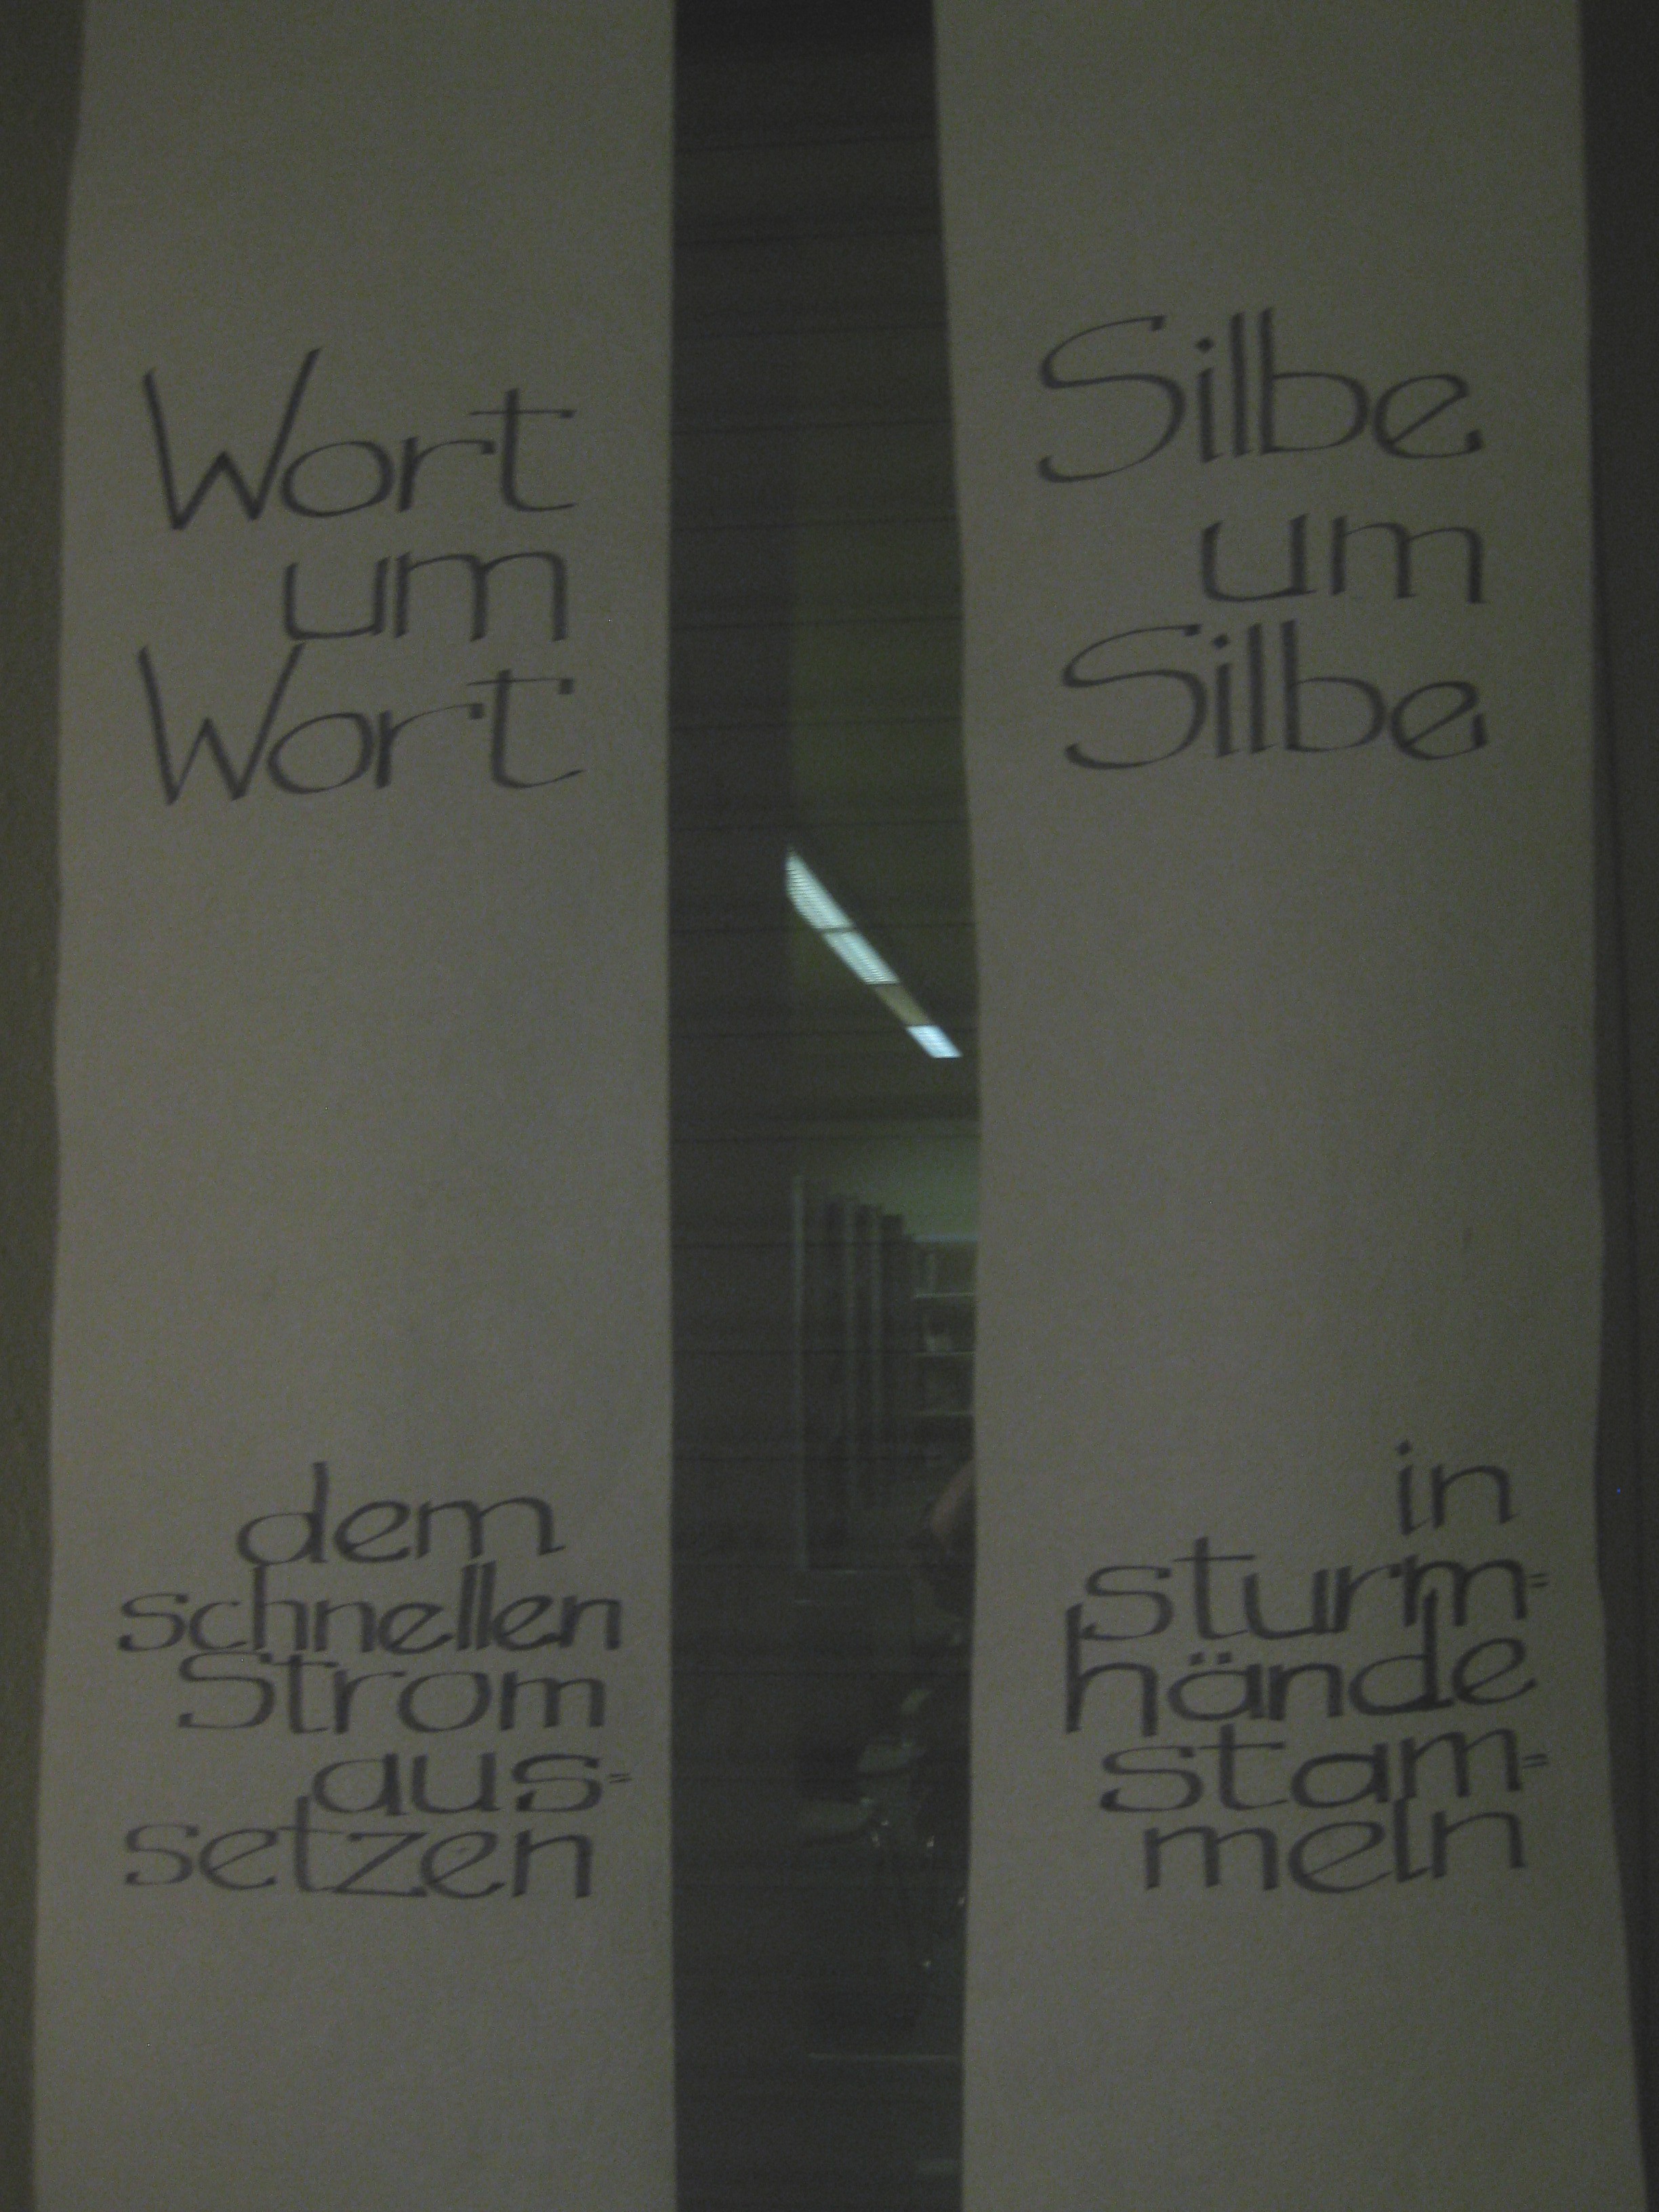 Wort
um
Wort
dem
schnellen
Strom
aus=
setzen
Silbe
um
Silbe
in
sturm=
hände
stam=
meln